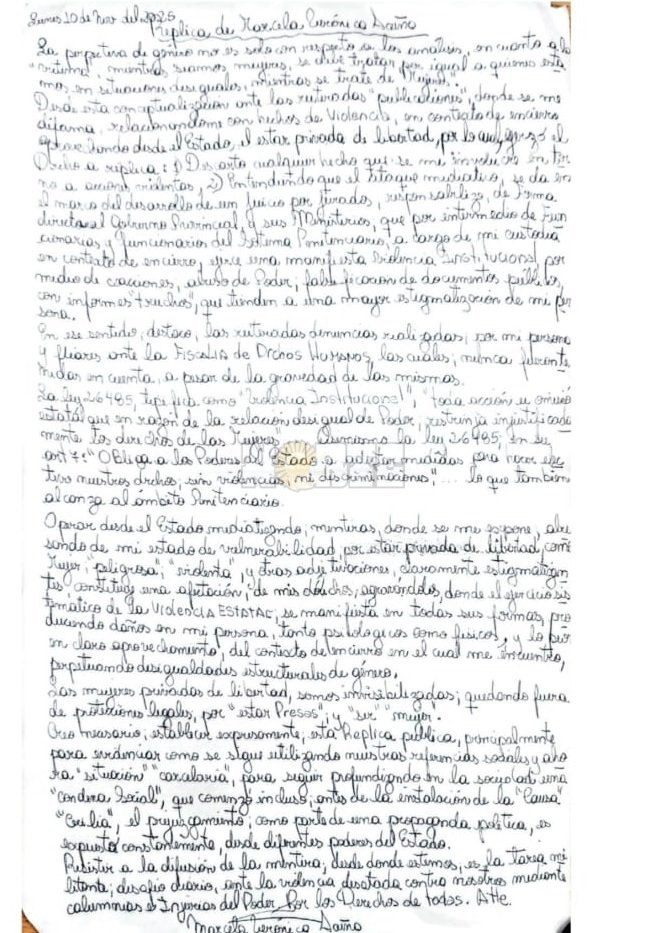 Lunes 10 de Nov del 2025
Replica de Marcela Verónica Acuña
La perpectiva de género no es solo con respecto a los análisis, en cuanto a la
"víctima", mientras seamos mujeres, se debe tratar por igual a quienes esta
mos en situaciones desiguales, mientras se trate de "Mujeres".
Desde esta conceptualización ante las reiteradas "publicaciones", donde se me
difama, relacionandome con hechos de Violencia, en contexto de encierro
aprovechando desde el Estado, el estar privada de libertad, por lo cual, ejerzo el
Drcho a réplica: 1) Descarto cualquier hecho que se me involucre en tor
no a acciones violentas, 2) Entendiendo que el ataque mediatico, se da en
el marco del desarrollo de un juicio por jurados, responsabilizo, de forma
directa al Gobierno Provincial, y sus Ministerios, que por intermedio de Fun
cionarias y funcionarios del Sistema Penitenciario, a cargo de mi custodia
en contexto de encierro, ejerce una manifiesta Violencia Institucional, por
medio de coacciones, abuso de Poder, falsificación de documentos públicos,
con informes "truchos", que tienden a una mayor estigmatización de mi per
sona.
En ese sentido, destaco, las reiteradas denuncias realizadas, por mi persona
y fliares ante la Fiscalia de Drchos Humanos, las cuales, nunca fueron te
nidas en cuenta, a pesar de la gravedad de las mismas.
La ley 26485, tipifica como "Violencia Institucional", "toda acción u omisió
estatal que en razón de la relación desigual de Poder, restrinja injustificada
mente los derechos de las Mujeres Asimismo la ley 26485, en su
art 7: "Obliga a los Poderes del Estado a adoptar medidas para hacer efec
tivo nuestros drchos, sin violencias ni discriminaciones", .... lo que también
alcanza al ámbito Penitenciario.
Operar desde el Estado mediatizando, mentiras, donde se me expone, abu
sando de mi estado de vulnerabilidad, por estar privada de libertad, como
Mujer, "peligrosa", "violenta", y otras adjetivaciones, claramente estigmatizan
tes constituye una afectación, de mis drchos, agravandolos, donde el ejercicio sis
tematico de la VIOLENCIA ESTATAL, se manifiesta en todas sus formas, pro
duciendo daños en mi persona, tanto psicologicos como fisicos, y lo peor
en claro aprovechamiento, del contexto de encierro en el cual me encuentro,
perpetuando desigualdades estructurales de género.
Las mujeres privadas de libertad, somos invisibilizadas; quedando fuera
de protecciones legales, por "estar Presas", y "ser" "mujer".
Creo necesario, establecer expresamente, esta Replica pública, principalmente
para evidenciar como se sigue utilizando nuestras referencias sociales y aho
ra "situación" "carcelaria", para seguir profundizando en la sociedad una
"condena Social", que comenzó incluso, antes de la instalación de la "Causa"
"Cecilia", el prejuzgamiento, como parte de una propaganda política, es
expuesta constantemente, desde diferentes poderes del Estado.
Resistir a la difusión de la mentira, desde donde estemos, es la tarea mi
litante, desafio diario, ante la violencia desatada contra nosotros mediante
calumnias e Injurias del Poder. Por los Derechos de todas. Atte.
Marcela Verónica Acuña